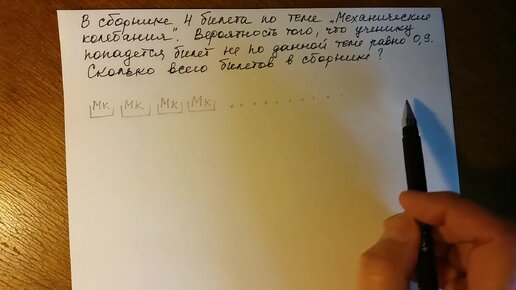 В сборнике 4 билета по теме „Механические
колебания". Вероятность того, что ученику
попадется билет не по данной теме равно 0,9.
Сколько всего билетов в сборнике?
Мк Мк Мк Мк ..........